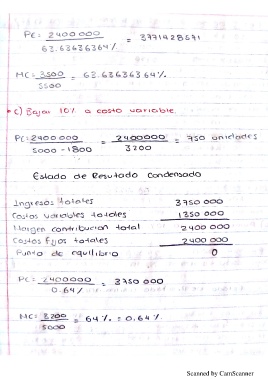 PC = 2400 000 = 3771428571
63.63636364%
MC = 3500 = 63.63636364%
5500
c) Bajar 10% a costo variable.
PC = 2400 000 = 2400000 = 750 unidades
5000 - 1800 3200
Estado de Resultado Condensado
Ingresos totales 3750 000
Costos variables totales 1350 000
Margen contribucion total 2400 000
Costos fijos totales 2400 000
Punto de equilibrio 0
PC = 2400000 = 3750 000
0.64%
MC = 3200 = 64% = 0.64%
5000
Scanned by CamScanner